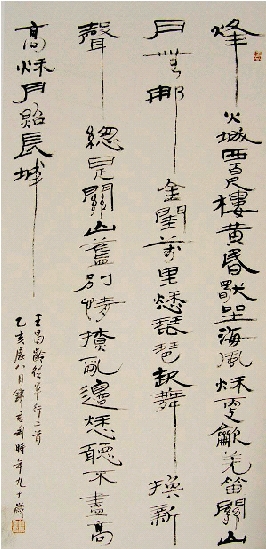 烽火城西百尺樓黃昏獨坐海風秋更龡羌笛關山
月無那金閨萬里愁琵琶起舞換新
聲總是關山舊別情撩亂邊愁聽不盡高
高秋月照長城
王昌齡從軍行二首
乙亥八月錢君匋時年九十歲